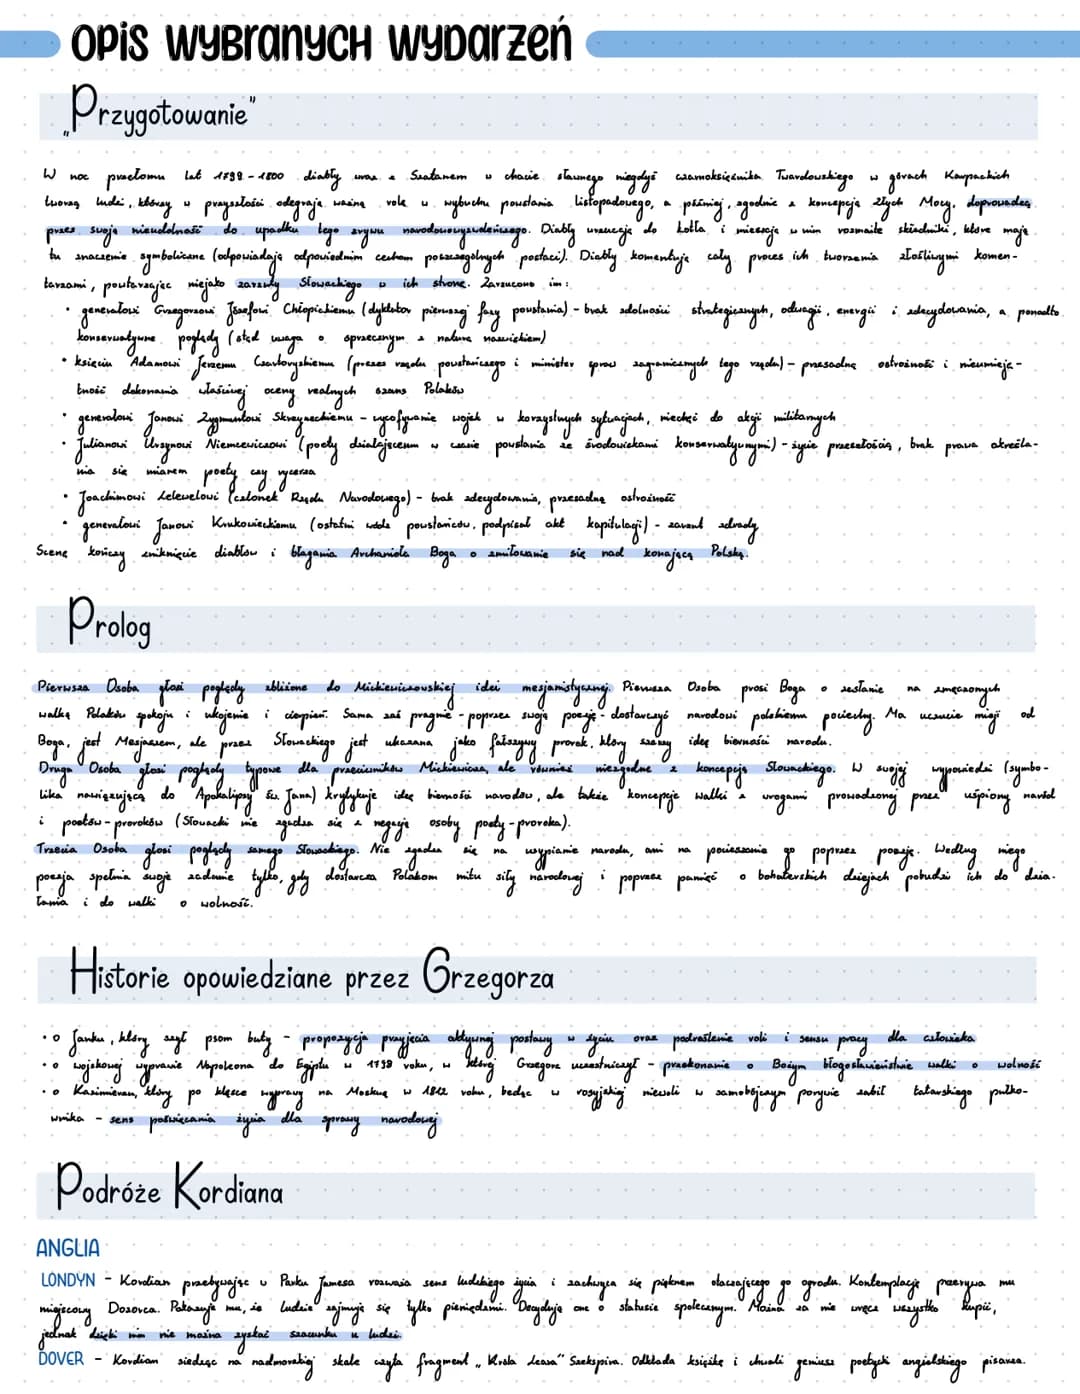 OPIS WYBRANYCH WYDARZEŃ
„Przygotowanie"
W noc przełomu lat 1799-1800 diabły wraz z Szatanem w chacie sławnego niegdyś czarnoksiężnika Twardowskiego w górach Karpackich
tworzą ludzi, którzy w przyszłości odegrają ważną rolę w wybuchu powstania listopadowego, a później, zgodnie z koncepcją złych Mocy, doprowadzą
przez swoją nieudolność do upadku tego zrywu narodowowyzwoleńczego. Diabły wrzucają do kotła i mieszają w nim rozmaite składniki, które mają
tu znaczenie symboliczne (odpowiadają odpowiednim cechom poszczególnych postaci). Diabły komentują cały proces ich tworzenia złośliwymi komen-
tarzami, powtarzając niejako zarzuty Słowackiego w ich stronę. Zarzucono im:
• generałowi Grzegorzowi Józefowi Chłopickiemu (dyktator pierwszej fazy powstania) - brak zdolności strategicznych, odwagi, energii i zdecydowania, a ponadto
konserwatywne poglądy (stąd uwaga o sprzecznym z naturą nazwiskiem)
• księciu Adamowi Jerzemu Czartoryskiemu (prezes rządu powstańczego i minister spraw zagranicznych tego rządu) - przesadną ostrożność i nieumieję-
tność dokonania właściwej oceny realnych szans Polaków
• generałowi Janowi Zygmuntowi Skrzyneckiemu - wycofywanie wojsk w korzystnych sytuacjach, niechęć do akcji militarnych
• Julianowi Ursynowi Niemcewiczowi (poety działającemu w czasie powstania ze środowiskami konserwatywnymi) - życie przeszłością, brak prawa określa-
nia się mianem poety czy rycerza
• Joachimowi Lelewelowi (członek Rządu Narodowego) - brak zdecydowania, przesadną ostrożność
• generałowi Janowi Krukowieckiemu (ostatni wódz powstańców, podpisał akt kapitulacji) - zarzut zdrady
Scenę kończy zniknięcie diabłów i błagania Archanioła Boga o zmiłowanie się nad konającą Polską.
Prolog
Pierwsza Osoba głosi poglądy zbliżone do Mickiewiczowskiej idei mesjanistycznej. Pierwsza Osoba prosi Boga o zesłanie na zmęczonych
walką Polaków spokoju i ukojenie i cierpień. Sama zaś pragnie - poprzez swoją poezję - dostarczyć narodowi polskiemu pociechy. Ma uczucie misji od
Boga, jest Mesjaszem, ale przez Słowackiego jest ukazana jako fałszywy prorok, który szerzy ideę bierności narodu.
Druga Osoba głosi poglądy typowe dla przeciwników Mickiewicza, ale również niezgodne z koncepcją Słowackiego. W swojej wypowiedzi (symbo-
lika nawiązującą do Apokalipsy św. Jana) krytykuje ideę bierności narodów, ale także koncepcje walki z wrogami prowadzonej przez uśpiony naród
i poetów-proroków (Słowacki nie zgadza się z negacją osoby poety-proroka).
Trzecia Osoba głosi poglądy samego Słowackiego. Nie zgadza się na usypianie narodu, ani na pocieszanie go poprzez poezję. Według niego
poezja spełnia swoje zadanie tylko, gdy dostarcza Polakom mitu siły narodowej i poprzez pamięć o bohaterskich dziejach pobudzi ich do dzia-
łania i do walki o wolność.
Historie opowiedziane przez Grzegorza
• o Janku, który szył psom buty - propozycja przyjęcia aktywnej postawy w życiu oraz podreślenie roli i sensu pracy dla człowieka
• o wojskowej wyprawie Napoleona do Egiptu w 1798 roku, w której Grzegorz uczestniczył - przekonanie o Bożym błogosławieństwie walki o wolność
• o Kazimierzu, który po klęsce wyprawy na Moskwę w 1812 roku, będąc w rosyjskiej niewoli w samobójczym porywie zabił tatarskiego pułko-
wnika - sens poświęcania życia dla sprawy narodowej
Podróże Kordiana
ANGLIA
LONDYN - Kordian przebywając w Parku Jamesa rozważa sens ludzkiego życia i zachwyca się pięknem otaczającego go ogrodu. Kontemplację przerywa mu
miejscowy Dozorca. Pokazuje mu, że ludzie zajmują się tylko pieniędzmi. Decydują one o statusie społecznym. Można za nie wręcz wszystko kupić,
jednak dzięki nim nie można zyskać szacunku u ludzi.
DOVER - Kordian siedząc na nadmorskiej skale czyta fragment „Króla Leara" Szekspira. Odkłada książkę i chwali geniusz poetycki angielskiego pisarza.